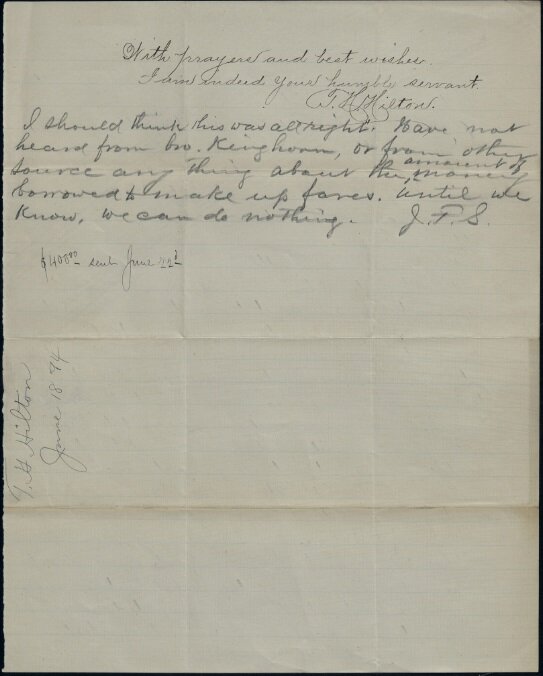 With prayers and best wishes.
I am indeed your humble servant.
T. H. Hilton.
I should think this was all right. Have not
heard from bro. Kinghorn, or from other
source any thing about the amount of money
borrowed to make up fares. Until we
know, we can do nothing. J. F. S.
$400.00 sent June 22d
T. H Hilton
June 18. 94